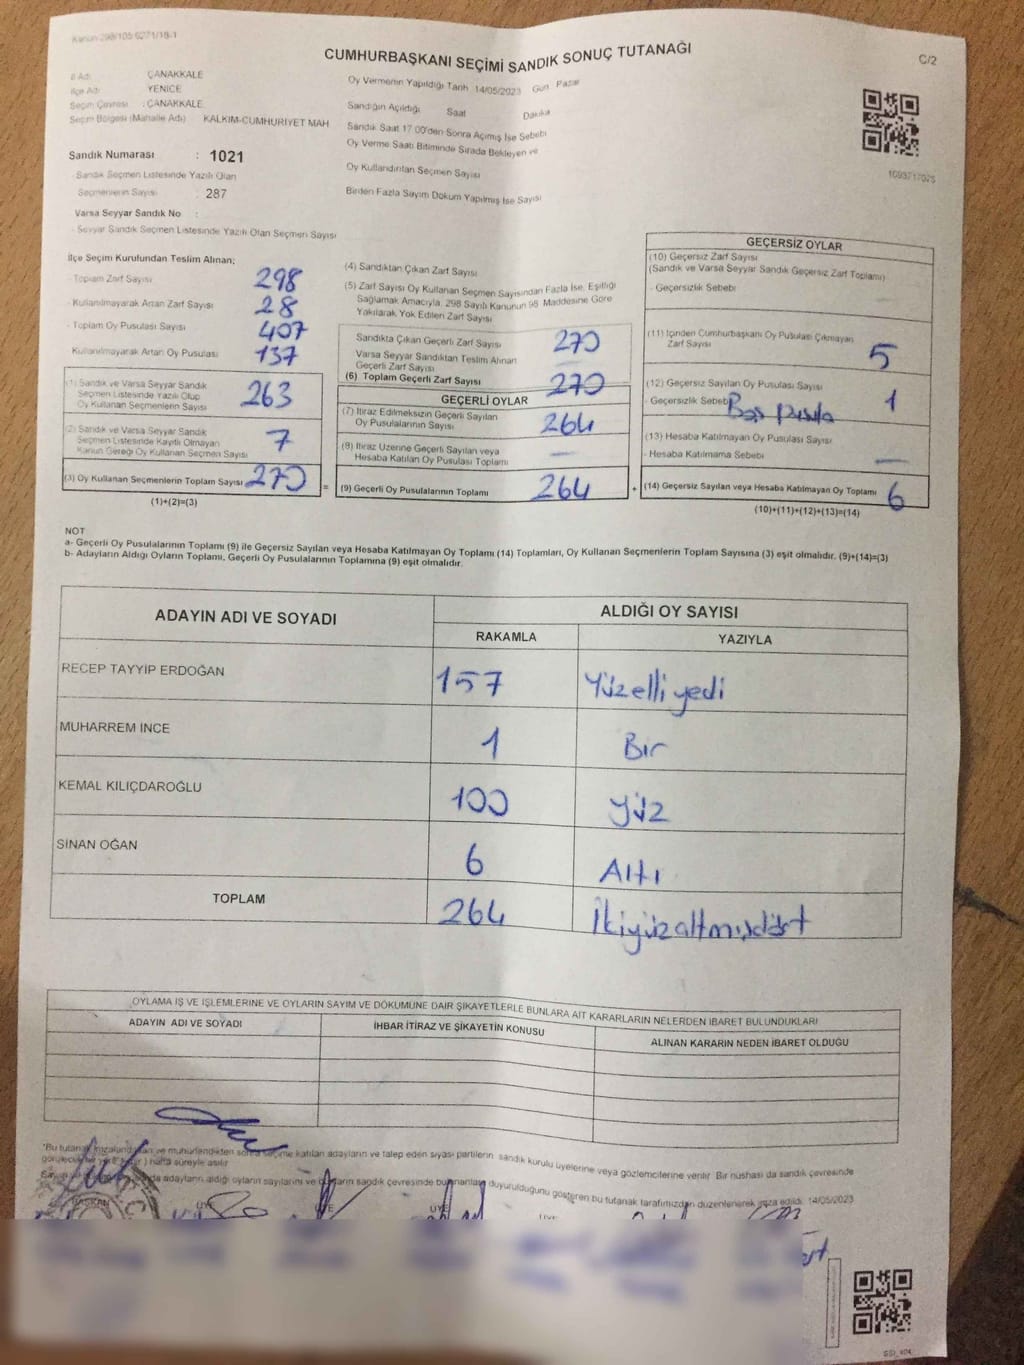 Kanun 298/105 6271/18-1
CUMHURBAŞKANI SEÇİMİ SANDIK SONUÇ TUTANAĞI
C/2
İl Adı ÇANAKKALE
İlçe Adı YENİCE
Seçim Çevresi : ÇANAKKALE
Seçim Bölgesi (Mahalle Adı) KALKIM-CUMHURİYET MAH
Sandık Numarası : 1021
- Sandık Seçmen Listesinde Yazılı Olan
Seçmenlerin Sayısı : 287
Varsa Seyyar Sandık No :
- Seyyar Sandık Seçmen Listesinde Yazılı Olan Seçmen Sayısı
Oy Vermenin Yapıldığı Tarih 14/05/2023 Gün Pazar
Sandığın Açıldığı Saat Dakika
Sandık Saat 17.00'den Sonra Açılmış İse Sebebi
Oy Verme Saati Bitiminde Sırada Bekleyen ve
Oy Kullandırılan Seçmen Sayısı
Birden Fazla Sayım Döküm Yapılmış İse Sayısı
1093717075
İlçe Seçim Kurulundan Teslim Alınan;
- Toplam Zarf Sayısı 298
- Kullanılmayarak Artan Zarf Sayısı 28
- Toplam Oy Pusulası Sayısı 407
Kullanılmayarak Artan Oy Pusulası 137
(1) Sandık ve Varsa Seyyar Sandık
Seçmen Listesinde Yazılı Olup
Oy Kullanan Seçmenlerin Sayısı 263
(2) Sandık ve Varsa Seyyar Sandık
Seçmen Listesinde Kayıtlı Olmayan
Kanun Gereği Oy Kullanan Seçmen Sayısı 7
(3) Oy Kullanan Seçmenlerin Toplam Sayısı 270 =
(1)+(2)=(3)
(4) Sandıktan Çıkan Zarf Sayısı
(5) Zarf Sayısı Oy Kullanan Seçmen Sayısından Fazla İse, Eşitliği
Sağlamak Amacıyla, 298 Sayılı Kanunun 98. Maddesine Göre
Yakılarak Yok Edilen Zarf Sayısı
Sandıkta Çıkan Geçerli Zarf Sayısı 270
Varsa Seyyar Sandıktan Teslim Alınan
Geçerli Zarf Sayısı —
(6) Toplam Geçerli Zarf Sayısı 270
GEÇERLİ OYLAR
(7) İtiraz Edilmeksizin Geçerli Sayılan
Oy Pusulalarının Sayısı 264
(8) İtiraz Üzerine Geçerli Sayılan veya
Hesaba Katılan Oy Pusulası Toplamı —
(9) Geçerli Oy Pusulalarının Toplamı 264 +
GEÇERSİZ OYLAR
(10) Geçersiz Zarf Sayısı
(Sandık ve Varsa Seyyar Sandık Geçersiz Zarf Toplamı)
- Geçersizlik Sebebi
(11) İçinden Cumhurbaşkanı Oy Pusulası Çıkmayan
Zarf Sayısı 5
(12) Geçersiz Sayılan Oy Pusulası Sayısı
- Geçersizlik Sebebi Boş pusula 1
(13) Hesaba Katılmayan Oy Pusulası Sayısı
- Hesaba Katılmama Sebebi —
(14) Geçersiz Sayılan veya Hesaba Katılmayan Oy Toplamı 6
(10)+(11)+(12)+(13)=(14)
NOT
a- Geçerli Oy Pusulalarının Toplamı (9) ile Geçersiz Sayılan veya Hesaba Katılmayan Oy Toplamı (14) Toplamları, Oy Kullanan Seçmenlerin Toplam Sayısına (3) eşit olmalıdır. (9)+(14)=(3)
b- Adayların Aldığı Oyların Toplamı, Geçerli Oy Pusulalarının Toplamına (9) eşit olmalıdır.
ADAYIN ADI VE SOYADI
ALDIĞI OY SAYISI
RAKAMLA YAZIYLA
RECEP TAYYİP ERDOĞAN 157 Yüzelliyedi
MUHARREM İNCE 1 Bir
KEMAL KILIÇDAROĞLU 100 Yüz
SİNAN OĞAN 6 Altı
TOPLAM 264 İkiyüzaltmışdört
OYLAMA İŞ VE İŞLEMLERİNE VE OYLARIN SAYIM VE DÖKÜMÜNE DAİR ŞİKAYETLERLE BUNLARA AİT KARARLARIN NELERDEN İBARET BULUNDUKLARI
ADAYIN ADI VE SOYADI İHBAR İTİRAZ VE ŞİKAYETİN KONUSU ALINAN KARARIN NEDEN İBARET OLDUĞU
*Bu tutanak imzalandıktan ve mühürlendikten sonra seçime katılan adayların ve talep eden siyasi partilerin sandık kurulu üyelerine veya gözlemcilerine verilir. Bir nüshası da sandık çevresinde
hafta süreyle asılır
adayların aldığı oyların sayılarını ve bunların sandık çevresinde bulunanlara duyurulduğunu gösteren bu tutanak tarafımızdan düzenlenerek imza edildi. 14/05/2023
BAŞKAN ÜYE ÜYE ÜYE